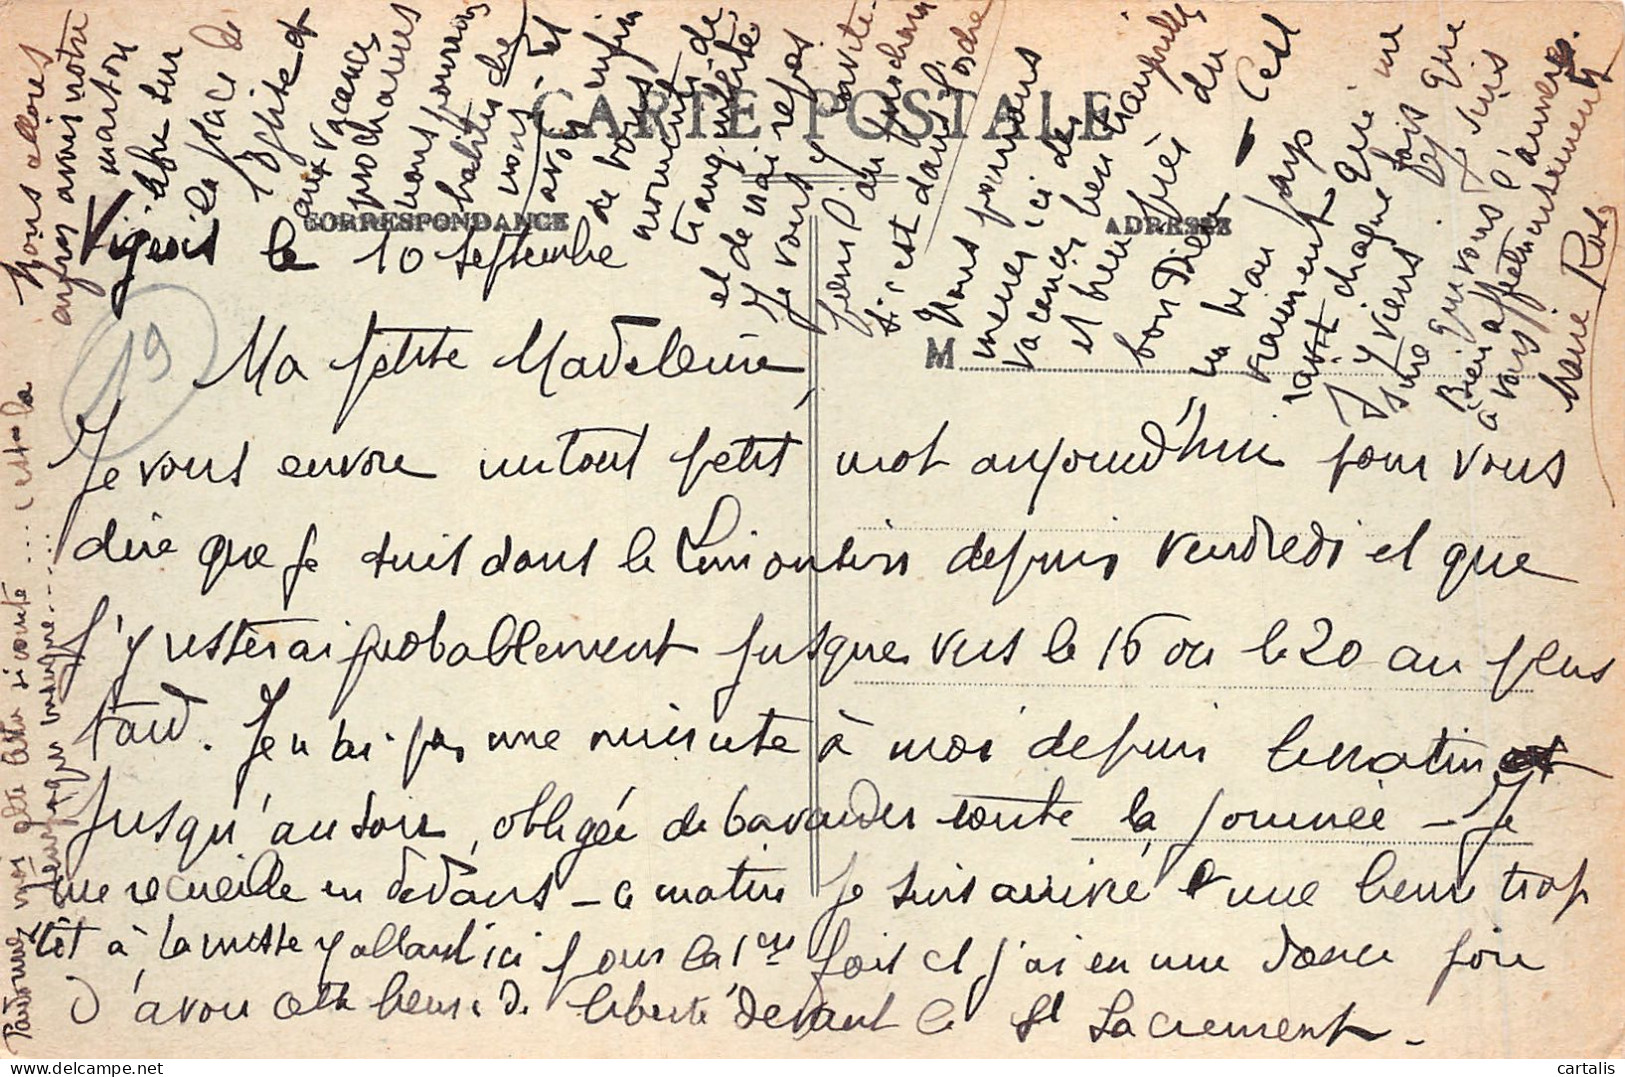 CARTE POSTALE
CORRESPONDANCE
ADRESSE
M
19
Vigeois le 10 septembre
Ma petite Madeleine,
Je vous envoie un tout petit mot aujourd'hui pour vous
dire que je suis dans le Limousin depuis vendredi et que
j'y resterai probablement jusque vers le 16 ou le 20 au plus
tard. Je n'ai pas une minute à moi depuis le matin
jusqu'au soir, obligée de bavarder toute la journée - Je
me recueille en dedans - ce matin je suis arrivée une heure trop
tôt à la messe y allant ici pour la 1ère fois et j'ai eu une douce joie
d'avoir cette heure de liberté devant le St Sacrement -
Nous allons
après avoir notre
maison
libre sur
la place de
l'Eglise et
aux vacances
prochaines
nous pourrons
nous
avoir enfin
de bons
moments de
tranquillité
et de vrai repos
Je vous y invite
pour l'an prochain
si c'est dans l'ordre
Nous pourrons
mener ici des
vacances bien tranquilles
et bien près du
bon Dieu - C'est
un beau pays
vraiment qui me
ravit chaque fois que
j'y viens. Je suis
sûre que vous l'aimerez.
Bien affectueusement
à vous
Marie Rose
Pardonnez moi cette lettre si courte .... c'est la